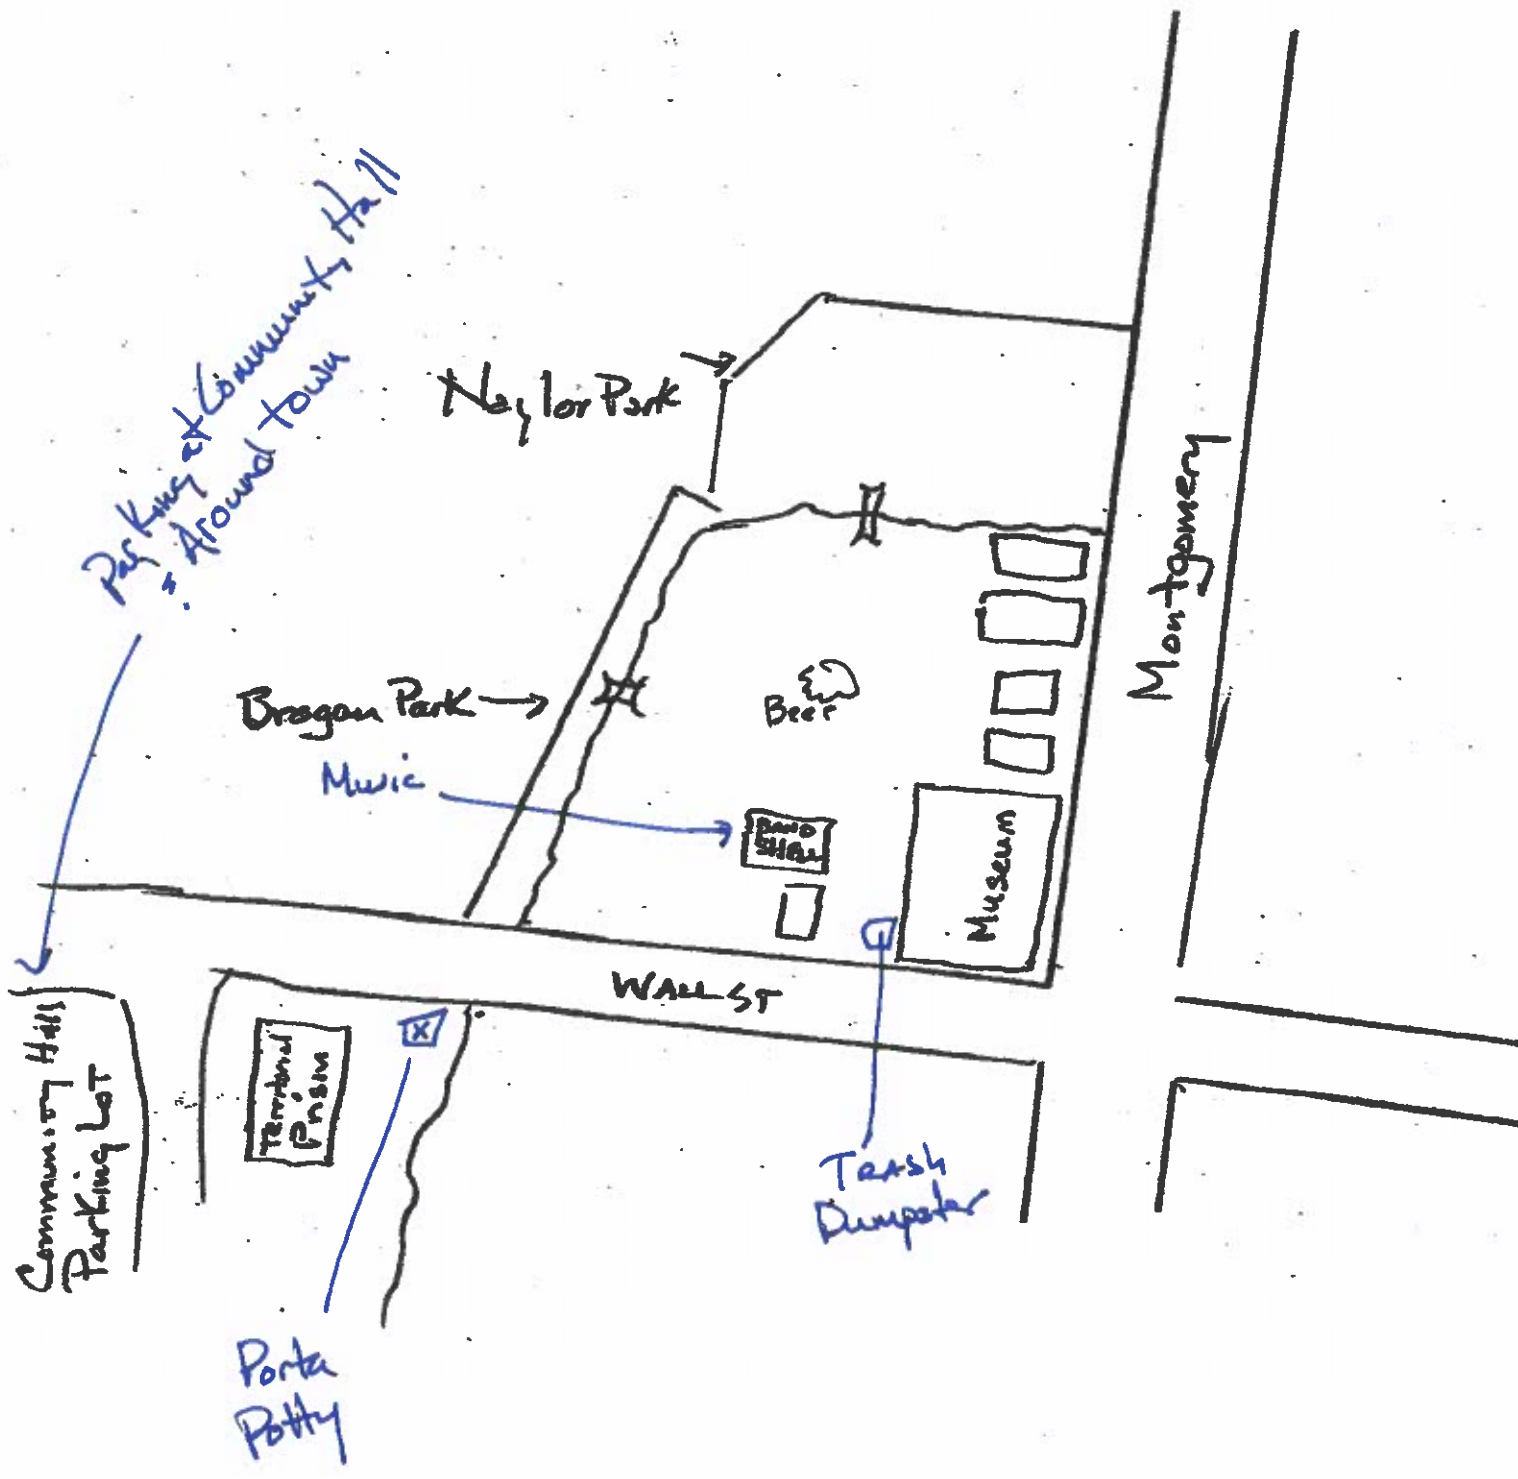 Parking at Community Hall
& Around town
Naylor Park
Montgomery
Brogan Park
Beer
Music
BAND
SHELL
Museum
WALL ST
Community Hall's
Parking Lot
Territorial
Prison
X
TRASH
Dumpster
Porta
Potty